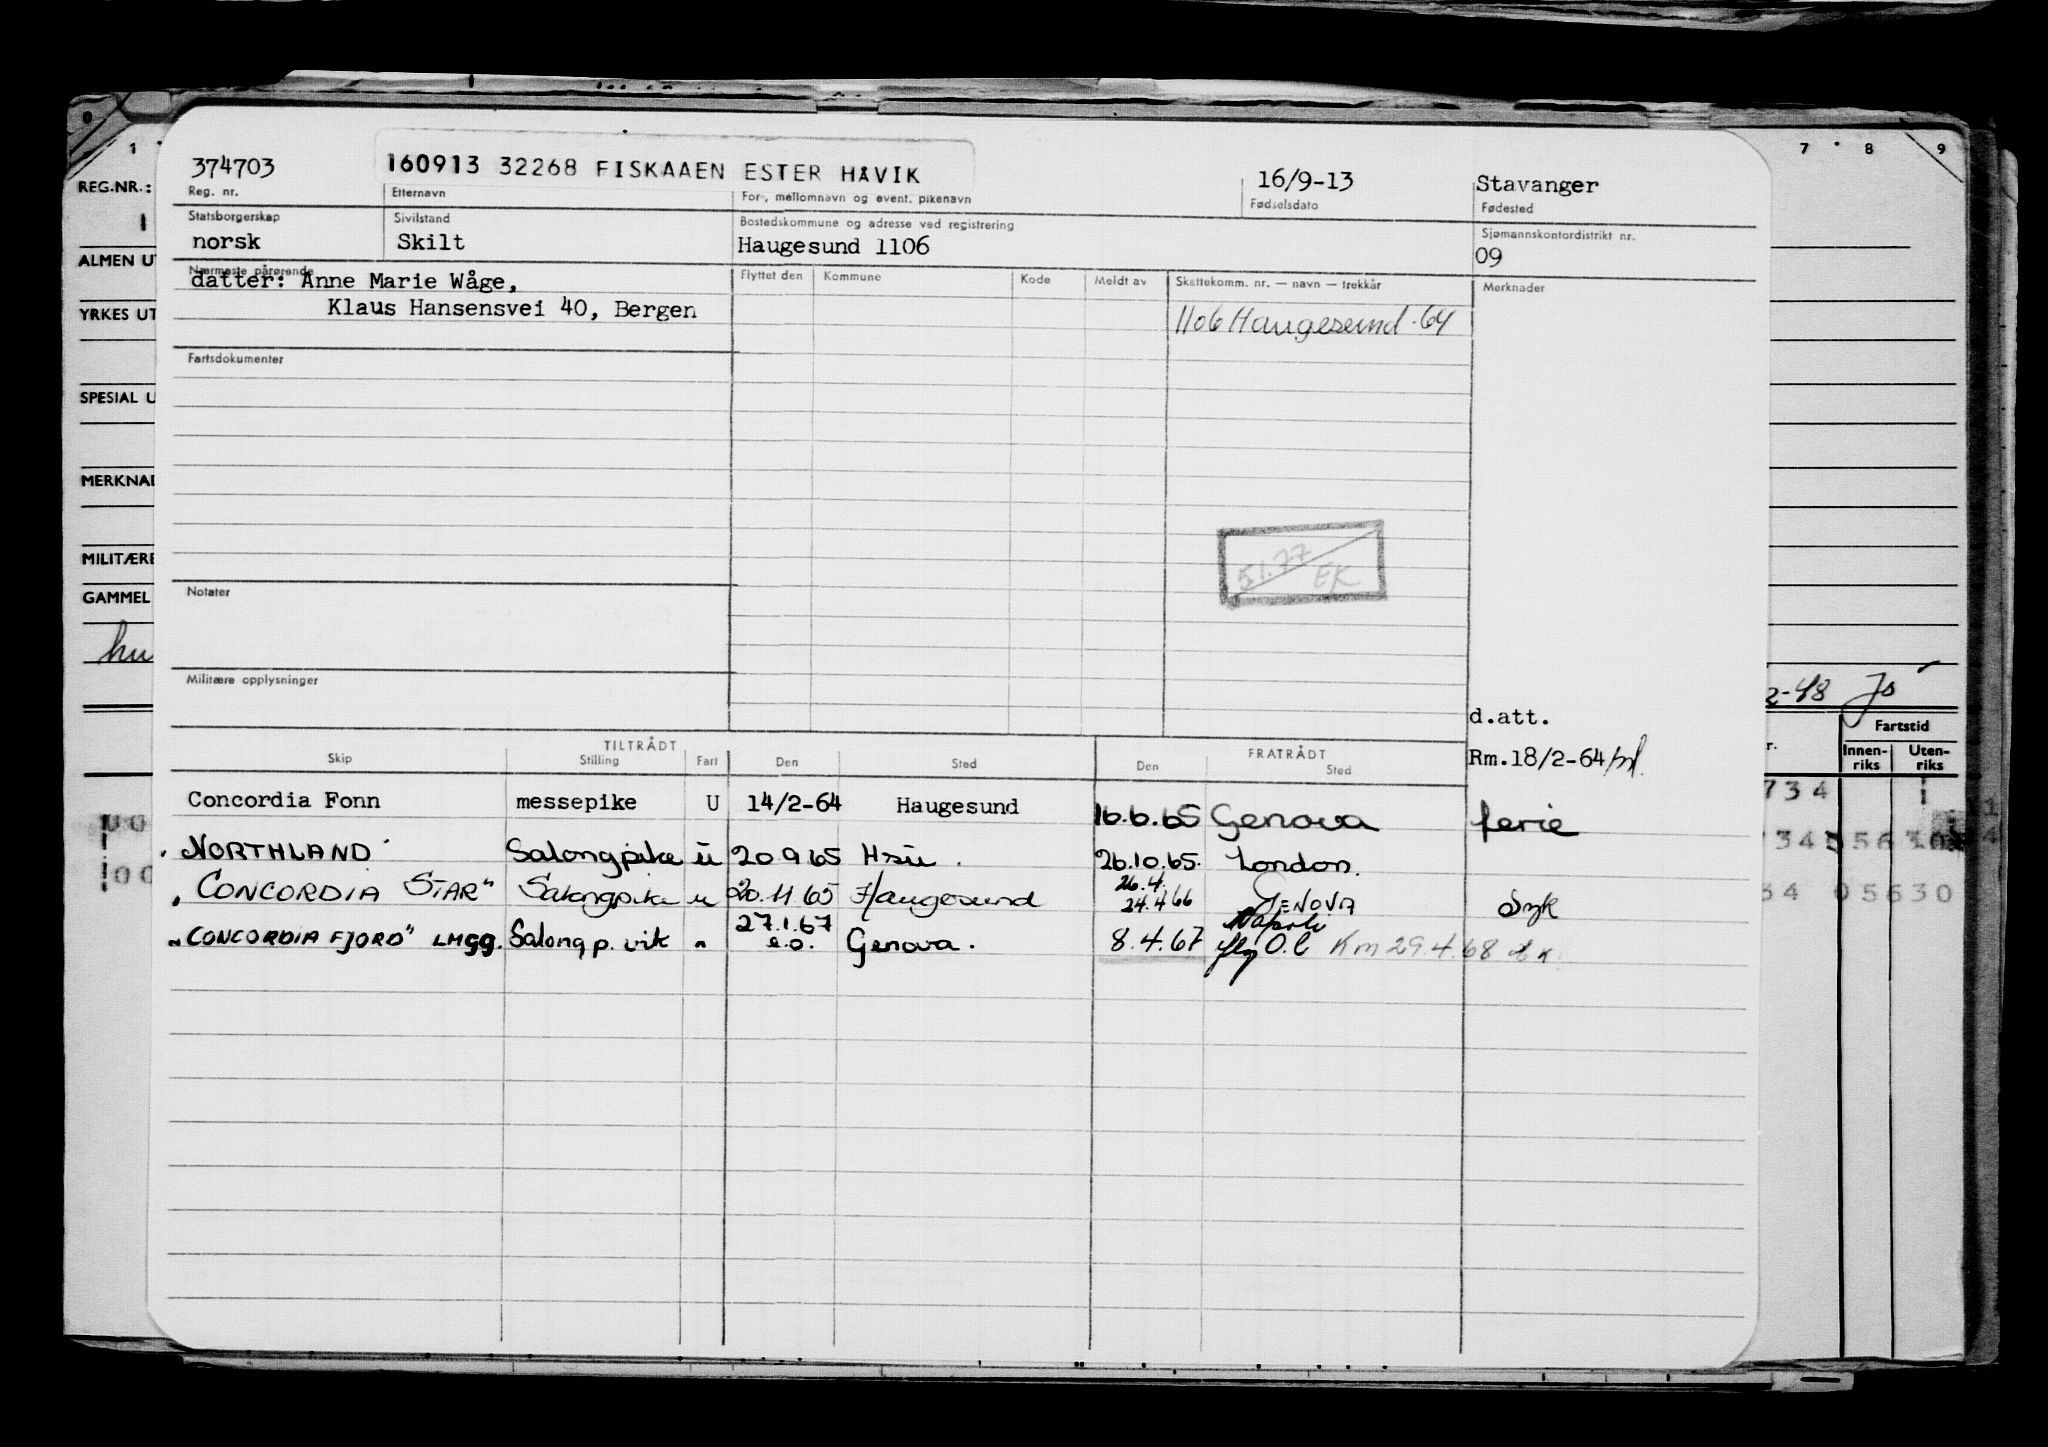 0 1 7 8 9
REG.NR.:
ALMEN UT
YRKES UT
SPESIAL U
MERKNAD
MILITÆRE
GAMMEL
hu
374703 160913 32268 FISKAAEN ESTER HAVIK 16/9-13 Stavanger
Reg. nr. Etternavn For-, mellomnavn og event. pikenavn Fødselsdato Fødested
Statsborgerskap Sivilstand Bostedskommune og adresse ved registrering Sjømannskontordistrikt nr.
norsk Skilt Haugesund 1106 09
Nærmeste pårørende Flyttet den Kommune Kode Meldt av Skattekomm. nr. — navn — trekkår Merknader
datter: Anne Marie Wåge,
Klaus Hansensvei 40, Bergen 1106 Haugesund -64
Fartsdokumenter
51.77 EK
Notater
Militære opplysninger
2-48 Js
d.att.
Fartstid
Innen-riks Uten-riks
TILTRÅDT FRATRÅDT
Skip Stilling Fart Den Sted Den Sted Rm.18/2-64
Concordia Fonn messepike U 14/2-64 Haugesund 16.6.65 Genova ferie
NORTHLAND Salongpike u 20.9.65 Hsu. 26.10.65. London.
"CONCORDIA STAR" Salongpike u 20.11.65 Haugesund 26.4. 24.4.66 GENOVA Syk
"CONCORDIA FJORD" LMGG. Salong p. vik " 27.1.67 e.o. Genova. 8.4.67 Napoli fly O.l Km 29.4.68
734
34 05630
34 05630